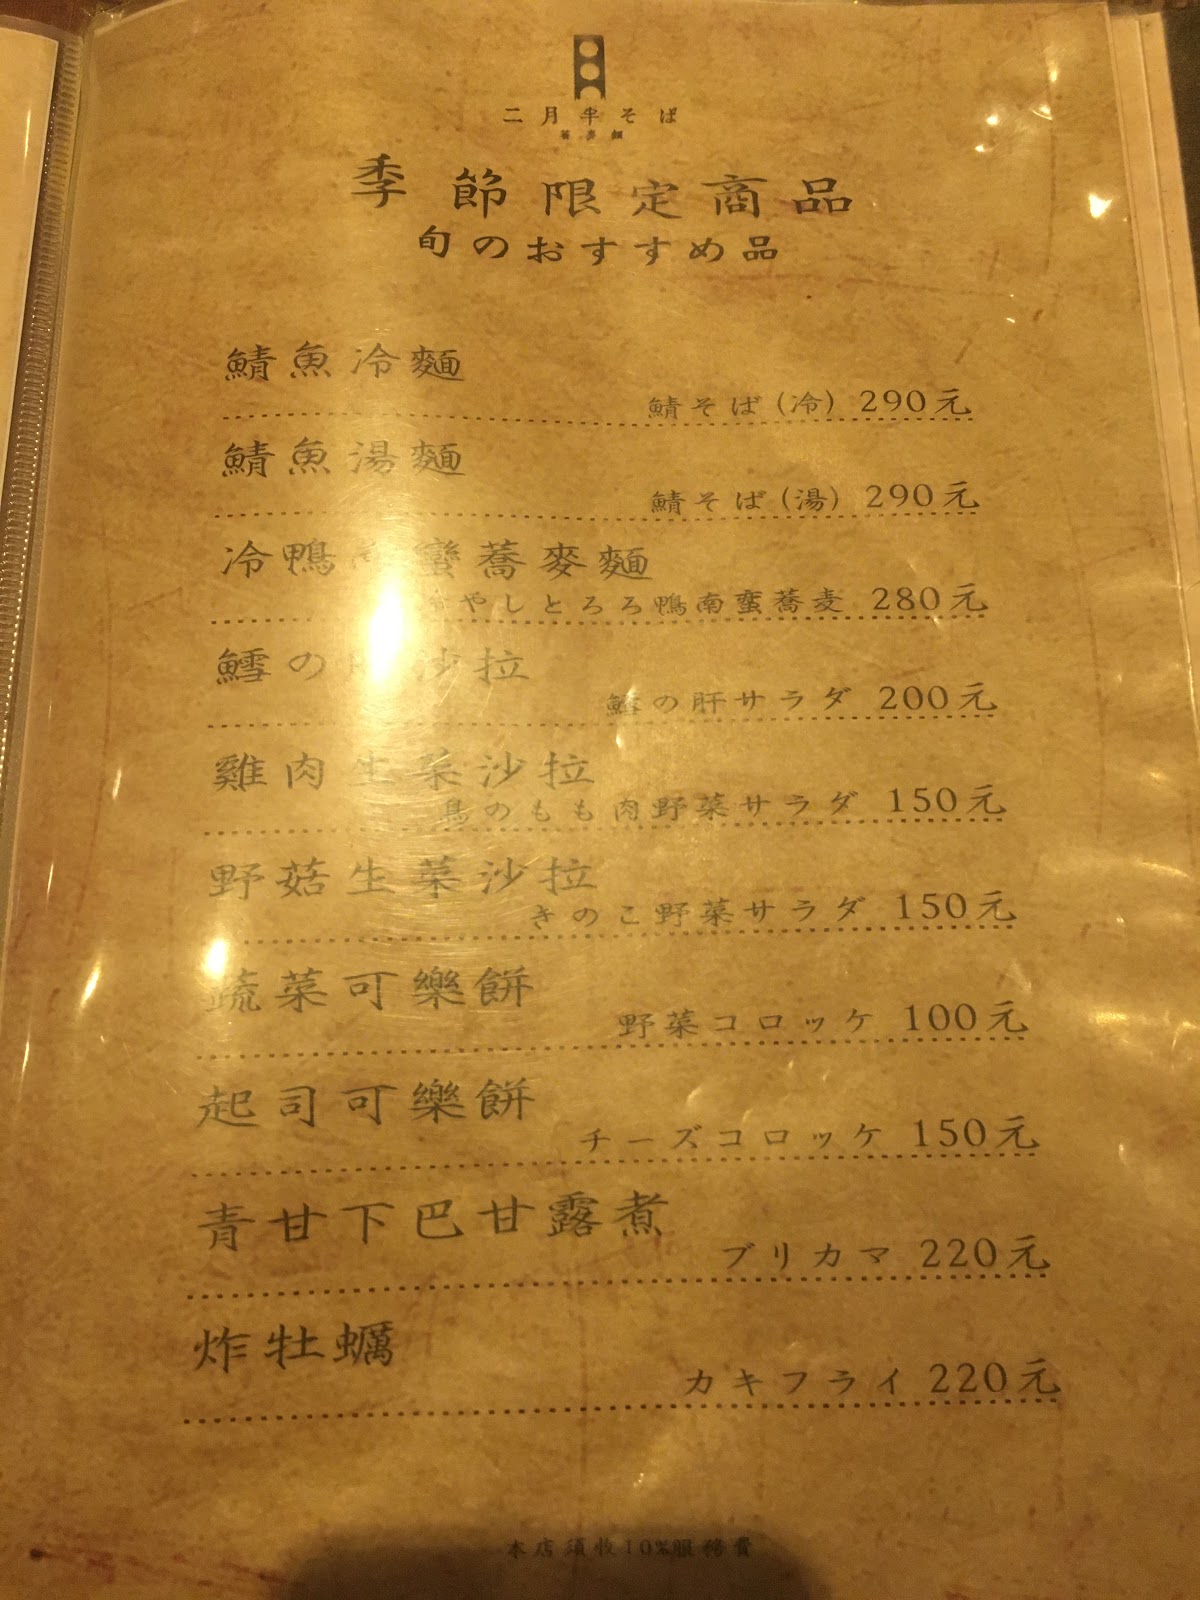 二月半そば
蕎麥麵
季節限定商品
旬のおすすめ品
鯖魚冷麵
鯖そば(冷) 290元
鯖魚湯麵
鯖そば(湯) 290元
冷鴨南蠻蕎麥麵
冷やしとろろ鴨南蛮蕎麦 280元
鱈の 沙拉
鱈の肝サラダ 200元
雞肉生菜沙拉
鳥のもも肉野菜サラダ 150元
野菇生菜沙拉
きのこ野菜サラダ 150元
蔬菜可樂餅
野菜コロッケ 100元
起司可樂餅
チーズコロッケ 150元
青甘下巴甘露煮
ブリカマ 220元
炸牡蠣
カキフライ 220元
本店須收10%服務費